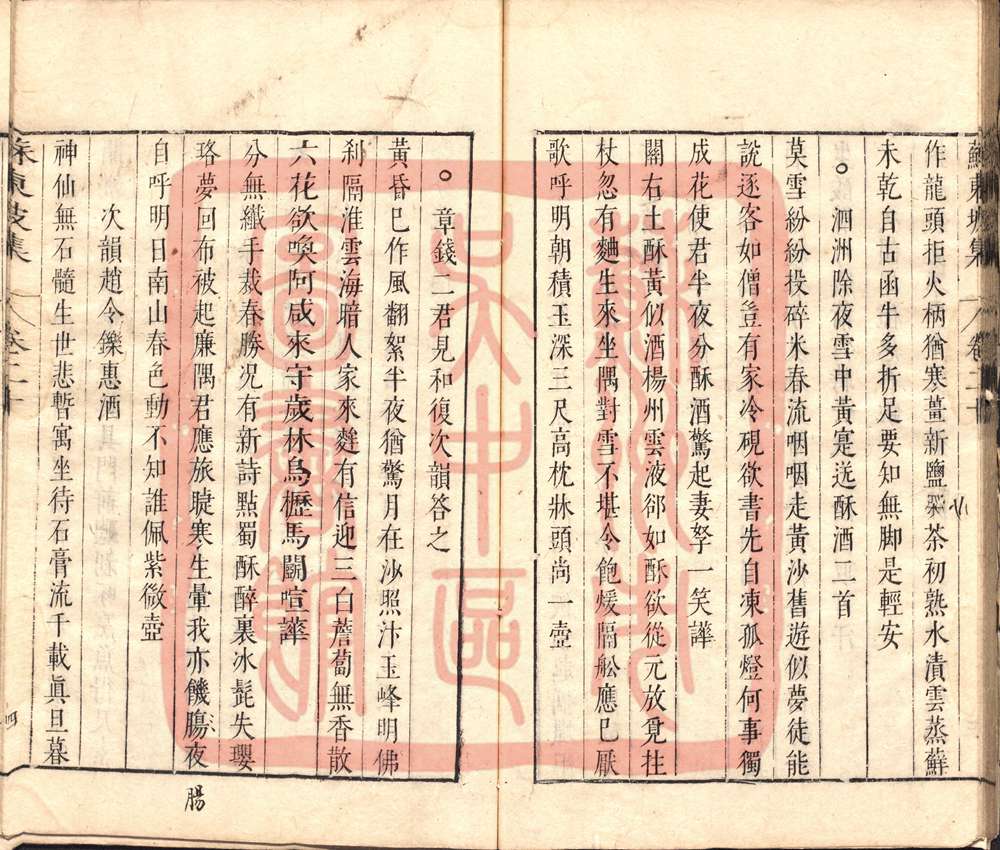 蘇東坡集 卷二十
作龍頭拒火柄猶寒薑新鹽茶初熟水漬雲蒸蘚
少
未乾自古函牛多折足要知無脚是輕安
○泗洲除夜雪中黃寔送酥酒二首
莫雪紛紛投碎米春流咽咽走黃沙舊遊似夢徒能
說逐客如僧豈有家冷硯欲書先自凍孤燈何事獨
成花使君半夜分酥酒驚起妻孥一笑譁
關右土酥黃似酒楊州雲液郤如酥欲從元放覓拄
杖忽有麯生來坐隅對雪不堪令飽煖隔舩應巳厭
歌呼明朝積玉深三尺高枕牀頭尚一壺
○章錢二君見和復次韻答之
黃昏巳作風翻絮半夜猶驚月在沙照汴玉峰明佛
刹隔淮雲海暗人家來麰有信迎三白薝蔔無香散
六花欲喚阿咸來守歲林烏櫪馬鬭喧譁
分無纖手裁春勝况有新詩點蜀酥醉裏冰髭失纓
珞夢回布被起廉隅君應旅睫寒生暈我亦饑膓夜
腸
自呼明日南山春色動不知誰佩紫微壺
次韻趙令鑠惠酒
神仙無石髓生世悲暫寓坐待石膏流千載眞旦暮
蘇東坡集 卷二十 四
蘇州市
吳中區
圖書館